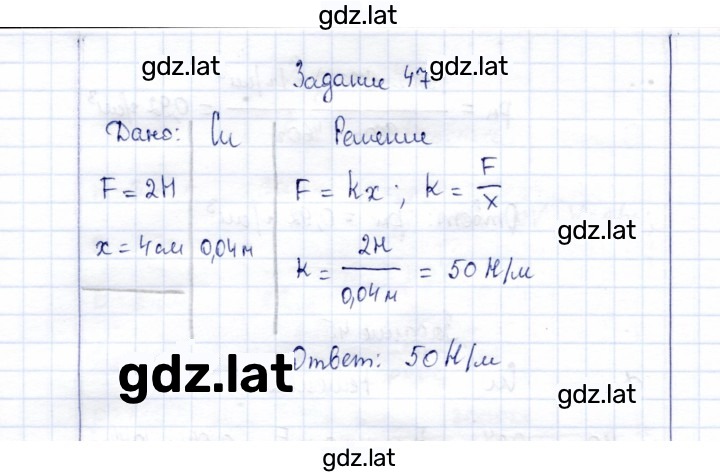 gdz.lat
gdz.lat gdz.lat
Задание 47
Дано: Си Решение
F = 2Н F = kx; k = F/x
x = 4см 0,04м k = 2Н/0,04м = 50 Н/м
gdz.lat
Ответ: 50 Н/м
gdz.lat gdz.lat
gdz.lat